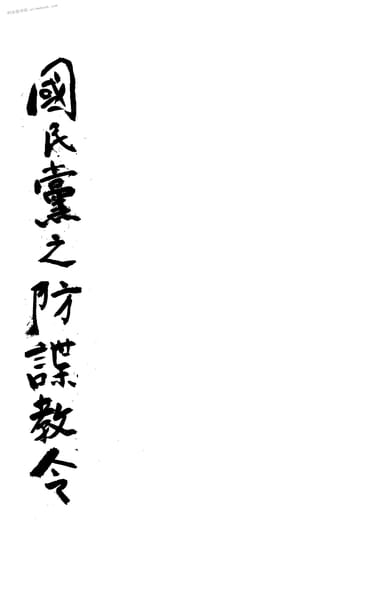 國民黨之防諜教令